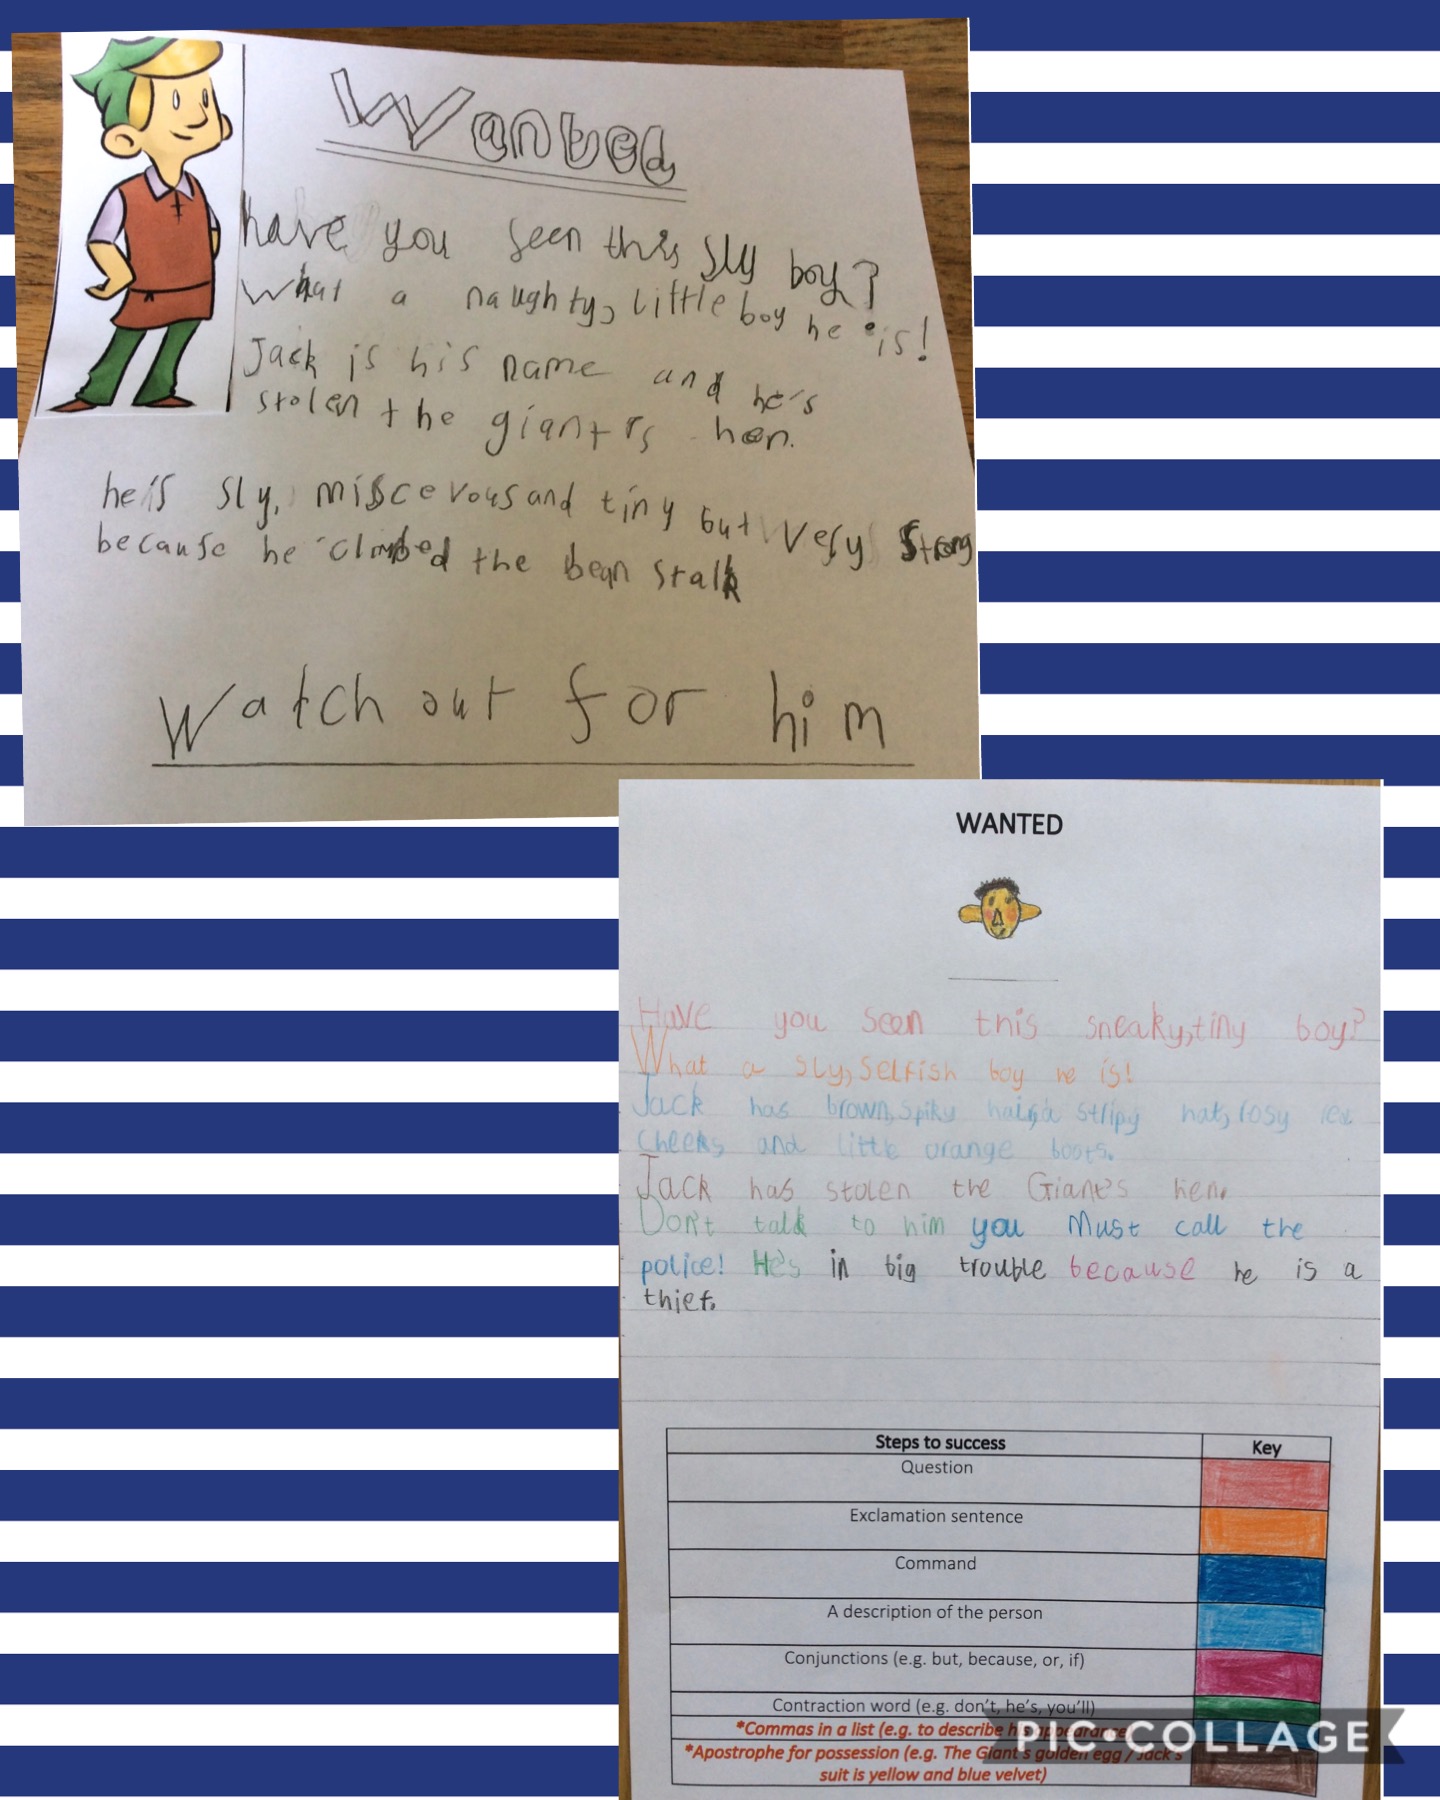 Wanted
have you seen this sly boy?
What a naughty, little boy he is!
Jack is his name and he's
stolen the giants hen.
he's sly, miscevousand tiny but very strong
because he climbed the bean stalk
Watch out for him
WANTED
Have you seen this sneaky,tiny boy?
What a sly,selfish boy he is!
Jack has brown,spiky hair,a stripy hat,rosy red
cheeks and little orange boots.
Jack has stolen the Giant's hen.
Don't talk to him you Must call the
police! He's in big trouble because he is a
thief.
Steps to success Key
Question
Exclamation sentence
Command
A description of the person
Conjunctions (e.g. but, because, or, if)
Contraction word (e.g. don't, he's, you'll)
*Commas in a list (e.g. to describe his appearance)
*Apostrophe for possession (e.g. The Giant's golden egg / Jack's
suit is yellow and blue velvet)
PIC•COLLAGE